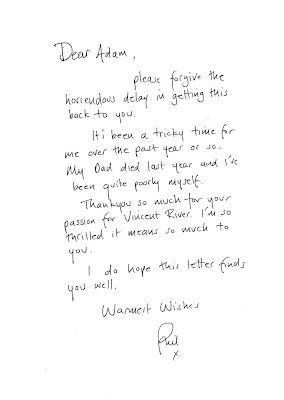 Dear Adam,
please forgive the
horrendous delay in getting this
back to you.
It's been a tricky time for
me over the past year or so.
My Dad died last year and I've
been quite poorly myself.
Thankyou so much for your
passion for Vincent River. I'm so
thrilled it means so much to
you.
I do hope this letter finds
you well.
Warmest Wishes
Phil
x